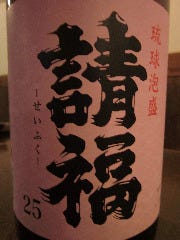 琉球泡盛
請福
－せいふく－
25